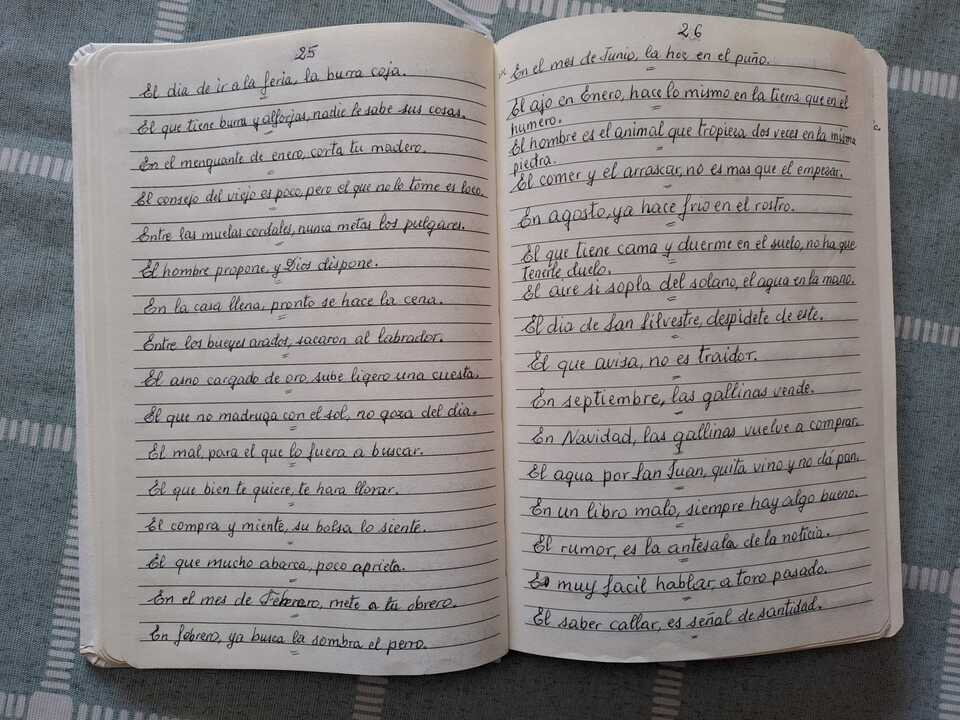 25
El dia de ir a la feria, la burra coja.
El que tiene burra y alforjas, nadie le sabe sus cosas.
En el menguante de enero, corta tu madero.
El consejo del viejo es poco, pero el que no lo tome es loco.
Entre las muelas cordales, nunca metas los pulgares.
El hombre propone, y Dios dispone.
En la casa llena, pronto se hace la cena.
Entre los bueyes arados, sacaron al labrador.
El asno cargado de oro, sube ligero una cuesta.
El que no madruga con el sol, no goza del dia.
El mal, para el que lo fuera a buscar.
El que bien te quiere, te hara llorar.
El compra y miente, su bolsa lo siente.
El que mucho abarca, poco aprieta.
En el mes de Febrero, mete a tu obrero.
En febrero, ya busca la sombra el perro.
26
En el mes de Junio, la hoz en el puño.
El ajo en Enero, hace lo mismo en la tierra que en el
humero.
El hombre es el animal que tropieza dos veces en la misma
piedra.
El comer y el arrascar, no es mas que el empezar.
En agosto, ya hace frio en el rostro.
El que tiene cama y duerme en el suelo, no ha que
tenerle duelo.
El aire si sopla del solano, el agua en la mano.
El dia de San Silvestre, despidete de este.
El que avisa, no es traidor.
En septiembre, las gallinas vende.
En Navidad, las gallinas vuelve a comprar.
El agua por San Juan, quita vino y no dá pan.
En un libro malo, siempre hay algo bueno.
El rumor, es la antesala de la noticia.
Es muy facil hablar, a toro pasado.
El saber callar, es señal de santidad.